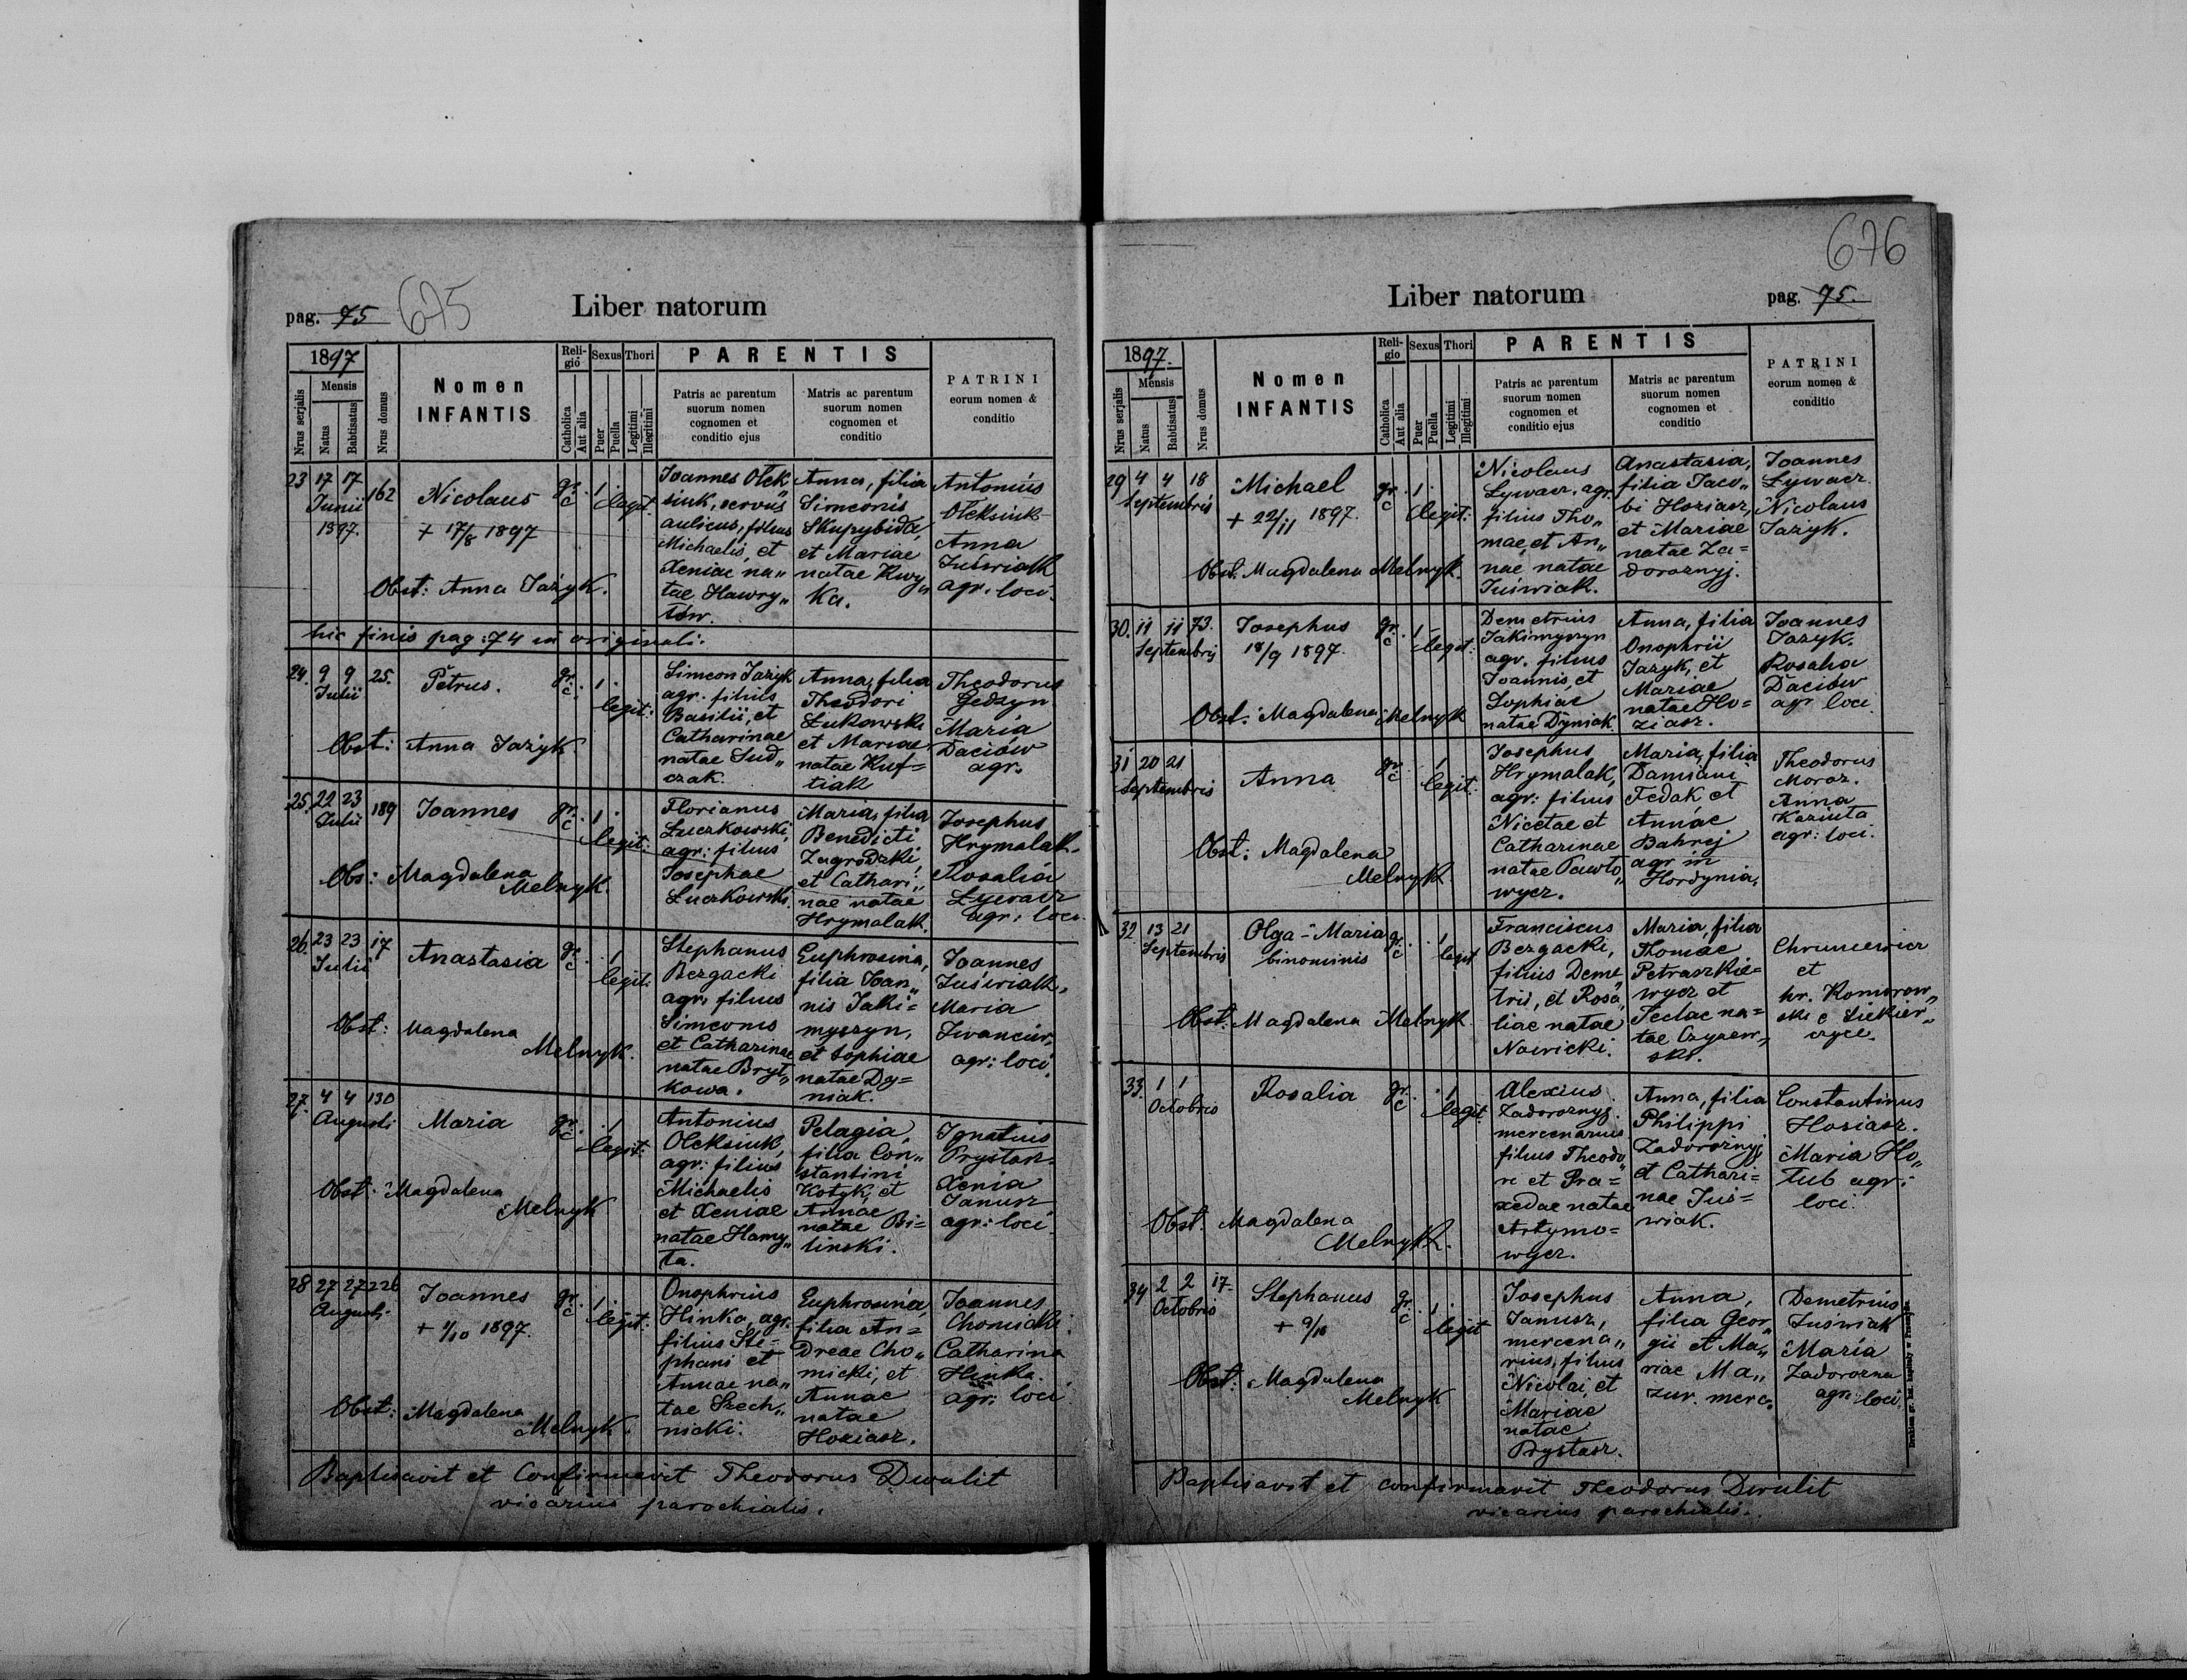 pag. 75 675
Liber natorum
1897
Nrus serjalis
Mensis
Natus
Babtisatus
Nrus domus
Nomen
INFANTIS
Reli-
gio
Catholica
Aut alia
Sexus
Puer
Puella
Thori
Legitimi
Illegitimi
PARENTIS
Patris ac parentum
suorum nomen
cognomen et
conditio ejus
Matris ac parentum
suorum nomen
cognomen et
conditio
PATRINI
eorum nomen &
conditio
23 17 17 162
Junii
1897.
Nicolaus
+ 17/8 1897
gr. c. 1 legit.
Obst: Anna Jazyk.
Joannes Olek„
siuk, servus
aulicus, filius
Michaelis, et
Xeniae na„
tae Hawry„
tów.
Anna, filia
Simeonis
Skupybida,
et Mariae
natae Kwy„
ka.
Antonius
Oleksiuk
Anna
Juświak
agr. loci.
hic finis pag: 74 in originali.
24. 9 9 25.
Julii
Petrus.
gr. c. 1 legit:
Obst: Anna Jazyk
Simeon Jazyk
agr. filius
Basilii, et
Catharinae
natae Sud„
czak.
Anna, filia
Theodori
Łukowski
et Mariae
natae Kuf=
tiak
Theodorus
Gedzyn
Maria
Daciów
agr.
25. 22 23 189
Julii
Joannes
gr. c. 1 legit:
Obs: Magdalena
Melnyk.
Florianus
Łuczkowski,
agr: filius
Josephae
Łuczkowski.
Maria, filia
Benedicti
Zagrodzki,
et Cathari„
nae natae
Hrymalak.
Josephus
Hrymalak.
Rosalia
Lywacz
agr: loci.
26. 23 23 17
Julii
Anastasia
gr. c. 1 legit:
Obst: Magdalena
Melnyk.
Stephanus
Bezgacki
agr. filius
Simeonis
et Catharinae
natae Bryt„
kowa.
Euphrosina,
filia Joan„
nis Jaki=
myszyn,
et Sophiae
natae Dy=
niak.
Joannes
Juświak,
Maria
Iwanciw,
agr: loci.
27. 4 4 130
Augusti
Maria
gr. c. 1 legit:
Obst: Magdalena
Melnyk
Antonius
Oleksiuk,
agr: filius
Michaelis
et Xeniae
natae Hamy„
ta.
Pelagia,
filia Con„
stantini
Kotyk, et
Annae
natae Bi=
linski.
Ignatius
Prystasz
Xenia
Janusz
agr: loci
28 27 27 226
Augusti
Joannes
+ 1/10 1897.
gr. c. 1 legit:
Obst: Magdalena
Melnyk.
Onophrius
Hinko, agr.
filius Ste=
phani et
Annae na„
tae Szech„
nicki.
Euphrosina,
filia An=
dreae Cho„
micki, et
Annae
natae
Hosiasz.
Joannes
Chomicki.
Catharina
Hinka.
agr: loci
Baptisavit et Confirmavit Theodorus Dwulit
vicarius parochialis.
676
Liber natorum
pag. 75.
1897.
Nrus serjalis
Mensis
Natus
Babtisatus
Nrus domus
Nomen
INFANTIS
Reli-
gio
Catholica
Aut alia
Sexus
Puer
Puella
Thori
Legitimi
Illegitimi
PARENTIS
Patris ac parentum
suorum nomen
cognomen et
conditio ejus
Matris ac parentum
suorum nomen
cognomen et
conditio
PATRINI
eorum nomen &
conditio
29 4 4 18
Septembris
Michael
+ 22/11 1897.
gr. c. 1 legit:
Obst: Magdalena Melnyk.
Nicolaus
Lywacz, agr.
filius Tho„
mae, et An„
nae natae
Juświak.
Anastasia,
filia Jaco„
bi Hosiasz,
et Mariae
natae Za=
doroznyj.
Joannes
Lywacz
Nicolaus
Jazyk.
30. 11 11 73.
Septembris
Josephus
18/9 1897.
gr. c. 1 legit:
Obst. Magdalena Melnyk
Demetrius
Jakimyszyn
agr. filius
Joannis, et
Sophiae
natae Dyniak.
Anna, filia
Onophrii
Jazyk, et
Mariae
natae Ho=
ziasz.
Joannes
Jazyk.
Rosalia
Daciów
agr loci
31 20 21
Septembris
Anna
gr. c. 1 legit:
Obst: Magdalena
Melnyk
Josephus
Hrymalak,
agr: filius
Nicetae et
Catharinae
natae Pawło„
wycz.
Maria, filia
Damiani
Fedak, et
Annae
Bahrej
agr in
Hordynia,
Theodorus
Moroz.
Anna
Kaziuta
agr: loci.
32 13 21
Septembris
Olga - Maria
binominis
gr. c. 1 legit
Obst: Magdalena Melnyk
Franciscus
Bezgacki,
filius Deme„
trii, et Rosa„
liae natae
Nawicki.
Maria, filia
Thomae
Petraszkie=
wycz et
Teclae na=
tae Czyzew„
ski.
et
hr. Komorow„
ski e Siekier„
czyce.
33. 1 1
Octobris
Rosalia
gr. c. 1 legit.
Obst. Magdalena
Melnyk.
Alexius
Zadoroznyj.
mercenarius
filius Theodo„
ri et Pra=
xedae natae
Artymo=
wycz.
Anna, filia
Philippi
Zadoroznyj
et Cathari=
nae Jus=
wiak.
Constantinus
Hosiasz.
Maria Ho„
łub agr:
loci.
34 2 2 17
Octobris
Stephanus
+ 9/10
gr. c. 1 legit
Obst: Magdalena
Melnyk
Josephus
Janusz,
mercena„
rius, filius
Nicolai, et
Mariae
natae
Prystasz.
Anna,
filia Geor„
gii et Ma„
riae Ma„
zur. merc.
Demetrius
Juświak
Maria
Zadorozna
agr: loci.
Baptisavit et confirmavit Theodorus Dwulit
vicarius parochialis.